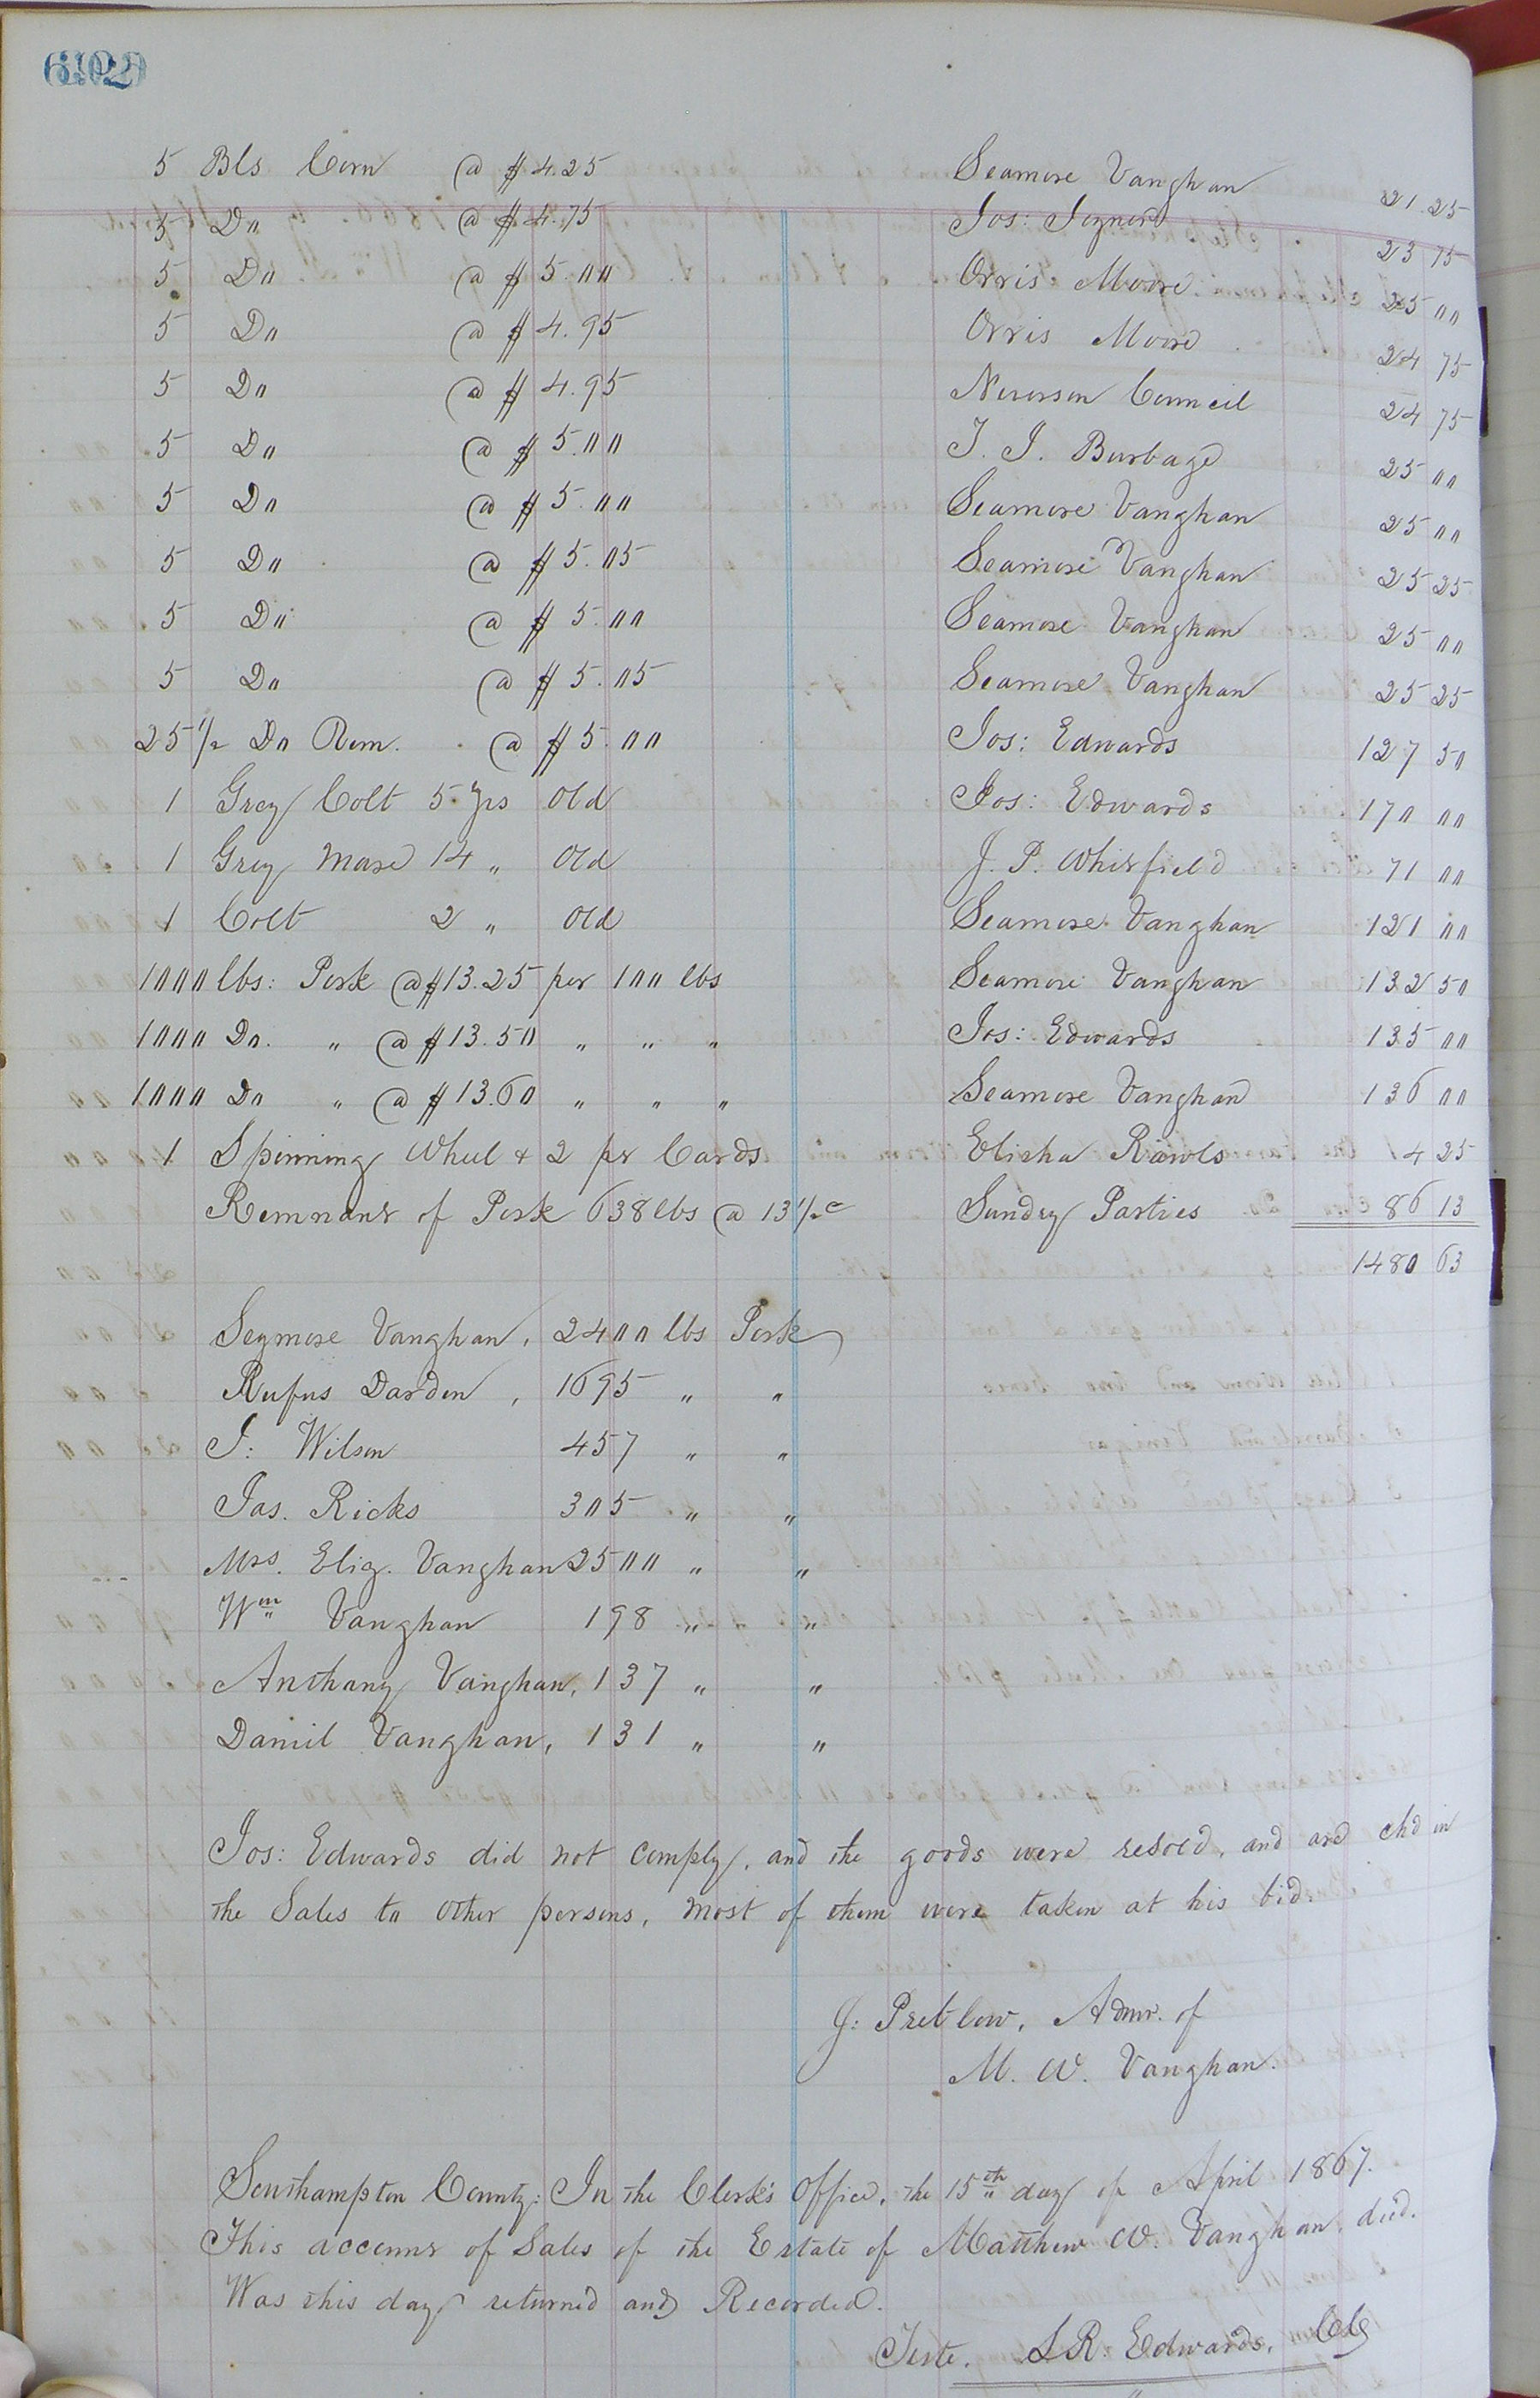 5 Bls Corn @ $4.25 Seamore Vaughan 21.25
5 Do @ $4.75 Jos: Joyner 23 75
5 Do @ $5.00 Orris Moore 25 00
5 Do @ $4.95 Orris Moore 24 75
5 Do @ $4.95 Neverson Council 24 75
5 Do @ $5.00 J. J. Burbage 25 00
5 Do @ $5.00 Seamore Vaughan 25 00
5 Do @ $5.05 Seamore Vaughan 25 25
5 Do @ $5.00 Seamore Vaughan 25 00
5 Do @ $5.05 Seamore Vaughan 25 25
25 1/2 Do Rem. @ $5.00 Jos: Edwards 127 50
1 Grey Colt 5 yrs Old Jos: Edwards 170 00
1 Grey Mare 14 " Old J. P. Whitfield 71 00
1 Colt 2 " Old Seamore Vaughan 121 00
1000 lbs: Pork @ $13.25 per 100 lbs Seamore Vaughan 132 50
1000 Do. " @ $13.50 " " " Jos: Edwards 135 00
1000 Do " @ $13.60 " " " Seamore Vaughan 136 00
1 Spinning Wheel & 2 pr Cards Elisha Rawls 4 25
Remnant of Pork 638 lbs @ 13 1/2 c Sundry Parties 86 13
1480 63
Seymore Vaughan, 2400 lbs Pork
Rufus Darden, 1695 " "
J: Wilson 457 " "
Jas. Ricks 305 " "
Mrs. Eliz. Vaughan 2500 " "
Wm Vaughan 198 " "
Anthany Vaughan, 137 " "
Daniel Vaughan, 131 " "
Jos: Edwards did not comply, and the goods were resold, and are chd in
the Sales to other persons, most of them were taken at his bid.
J: Pretlow, Admr. of
M. W. Vaughan.
Southampton County: In the Clerk's Office, the 15th day of April 1867.
This account of Sales of the Estate of Matthew W. Vaughan, decd.
Was this day returned and Recorded.
Teste. L R. Edwards, CC